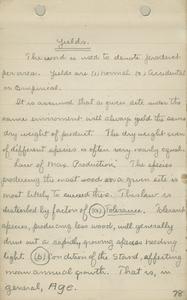 Yields.
The word is used to denote product
per area. Yields are (1) Normal (2) Accidental
or Empirical.
It is assumed that a given site under the
same environment will always yield the same
dry weight of product. The dry weight even
of different species is often very nearly equal.
Law of Max. Production. The species
producing the most wood on a given site is
most likely to succeed there. This law is
distorted by factor of (a) Tolerance. Tolerant
species, producing less wood, will generally
drive out a rapidly growing species needing
light. (b) Condition of the Stand, affecting
mean annual growth. That is, in
general, Age.
78